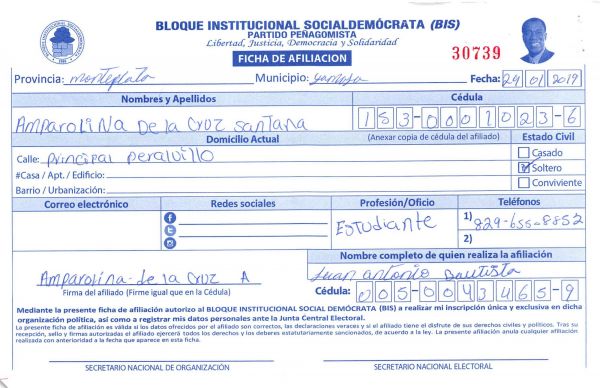 BLOQUE INSTITUCIONAL SOCIALDEMÓCRATA (BIS)
PARTIDO PEÑAGOMISTA
Libertad, Justicia, Democracia y Solidaridad
FICHA DE AFILIACION
30739
Provincia: Monteplata Municipio: yamasa Fecha: 24/01/2019
Nombres y Apellidos Cédula
AmparoLina De La Cruz Santana 153-0001023-6
Domicilio Actual (Anexar copia de cédula del afiliado) Estado Civil
Calle: principal peralvillo Casado
#Casa / Apt. / Edificio: Soltero
Barrio / Urbanización: Conviviente
Correo electrónico Redes sociales Profesión/Oficio Teléfonos
Estudiante 1) 829-655-8852
2)
Nombre completo de quien realiza la afiliación
Amparolina de la Cruz A Juan antonio Bautista
Firma del afiliado (Firme igual que en la Cédula) Cédula: 005-0043465-9
Mediante la presente ficha de afiliación autorizo al BLOQUE INSTITUCIONAL SOCIAL DEMÓCRATA (BIS) a realizar mi inscripción única y exclusiva en dicha
organización política, así como a registrar mis datos personales ante la Junta Central Electoral.
La presente ficha de afiliación es válida si los datos ofrecidos por el afiliado son correctos, las declaraciones veraces y si el afiliado tiene el disfrute de sus derechos civiles y políticos. Tras su
recepción, sello y firmas autorizadas el afiliado ejercerá todos los derechos y los deberes estatutariamente sancionados, de acuerdo a la ley. La presente afiliación anula cualquier afiliación
realizada con anterioridad a la fecha que aparece en esta ficha.
SECRETARIO NACIONAL DE ORGANIZACIÓN SECRETARIO NACIONAL ELECTORAL